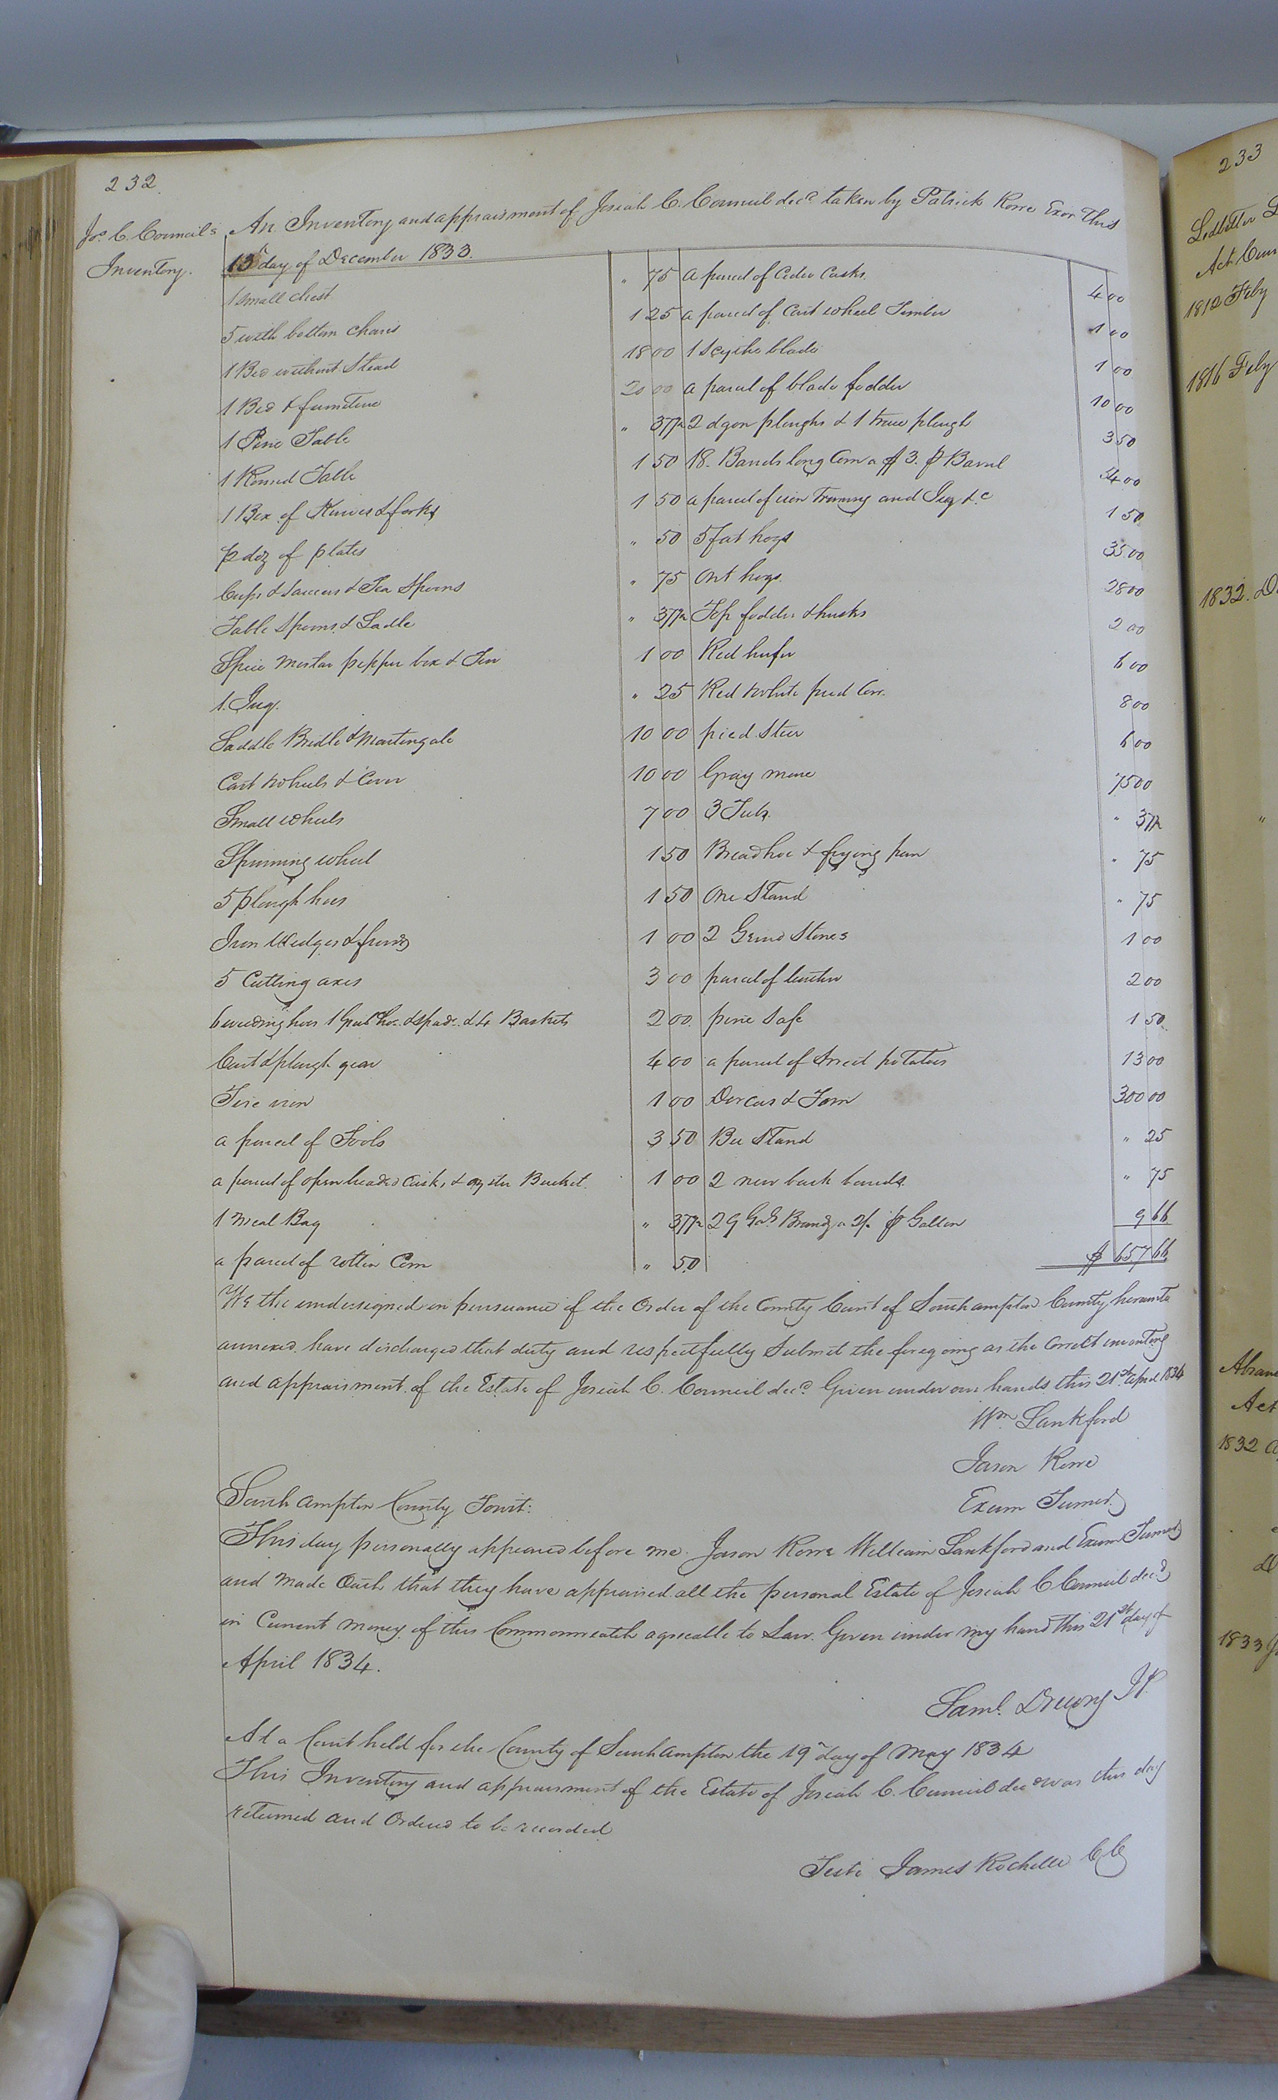 232
Jos. C. Council's
Inventory.
An Inventory and appraisment of Josiah C. Council decd taken by Patrick Rowe Exor this
13th day of December 1833.
1 small chest " 75
5 with bottom chairs 1 25
1 Bed without Stead 18 00
1 Bed & furniture 20 00
1 Pine Table " 37½
1 Round Table 1 50
1 Box of Knives & forks 1 50
½ doz of plates " 50
Cups & saucers & Tea Spoons " 75
Table Spoons & Ladle " 37½
Spice mortar pepper box & Tin 1 00
1 Jug. " 25
Saddle Bridle & Martingale 10 00
Cart wheels & Cover 10 00
Small wheels 7 00
Spinning wheel 1 50
5 plough hoes 1 50
Iron Wedges & 1 00
5 Cutting axes 3 00
6 weeding hoes 1 Grub hoe & spade & 4 Baskets 2 00
Cart & plough gear 4 00
Tire iron 1 00
a parcel of Tools 3 50
a parcel of open headed Casks & oyster Bucket. 1 00
1 Meal Bag " 37½
a parcel of rotten Corn " 50
a parcel of Cider Casks 4 00
a parcel of Cart wheel Timber 1 00
1 Scythe blade 1 00
a parcel of blade fodder 10 00
2 dgon ploughs & 1 trowe plough 3 50
18. Barrels long Corn a $3. ⅌ Barrel 54 00
a parcel of iron Tramny and Jug &c 1 50
5 fat hogs 35 00
Out hogs. 28 00
Top fodder & husks 2 00
Red heifer 6 00
Red & white pied Cow. 8 00
pied Steer 6 00
Gray mare 75 00
3 Tubs " 37½
Bread hoe & frying pan " 75
One Stand " 75
2 Grind Stones 1 00
parcel of leather 2 00
pine Safe 1 50
a parcel of Sweet potatoes 13 00
Dorcas & Tom 300 00
Bee Stand " 25
2 new back bands " 75
29 Gals Brandy a 2/. ⅌ Gallon 9 66
$ 657 66
We the undersigned in pursuance of the Order of the County Court of Southampton County hereunto
annexed have discharged that duty and respectfully Submit the foregoing as the correct inventory
and appraisment of the Estate of Josiah C. Council decd Given under our hands this 21st April 1834
Wm Lankford
Jason Rowe
Exum Turner
Southampton County Towit:
This day personally appeared before me Jason Rowe William Lankford and Exum Turner
and made Oath that they have appraised all the personal Estate of Josiah C Council decd
in Current money of this Commonwealth agreeable to Law. Given under my hand this 21st day of
April 1834.
Saml. Drewry JP.
At a Court held for the County of Southampton the 19th day of May 1834
This Inventory and appraisment of the Estate of Josiah C. Council decd was this day
returned and Ordered to be recorded
Teste James Rochelle CC
233
Ledbetter
1812 Feby
1816 Feby
1832.
1832
1833